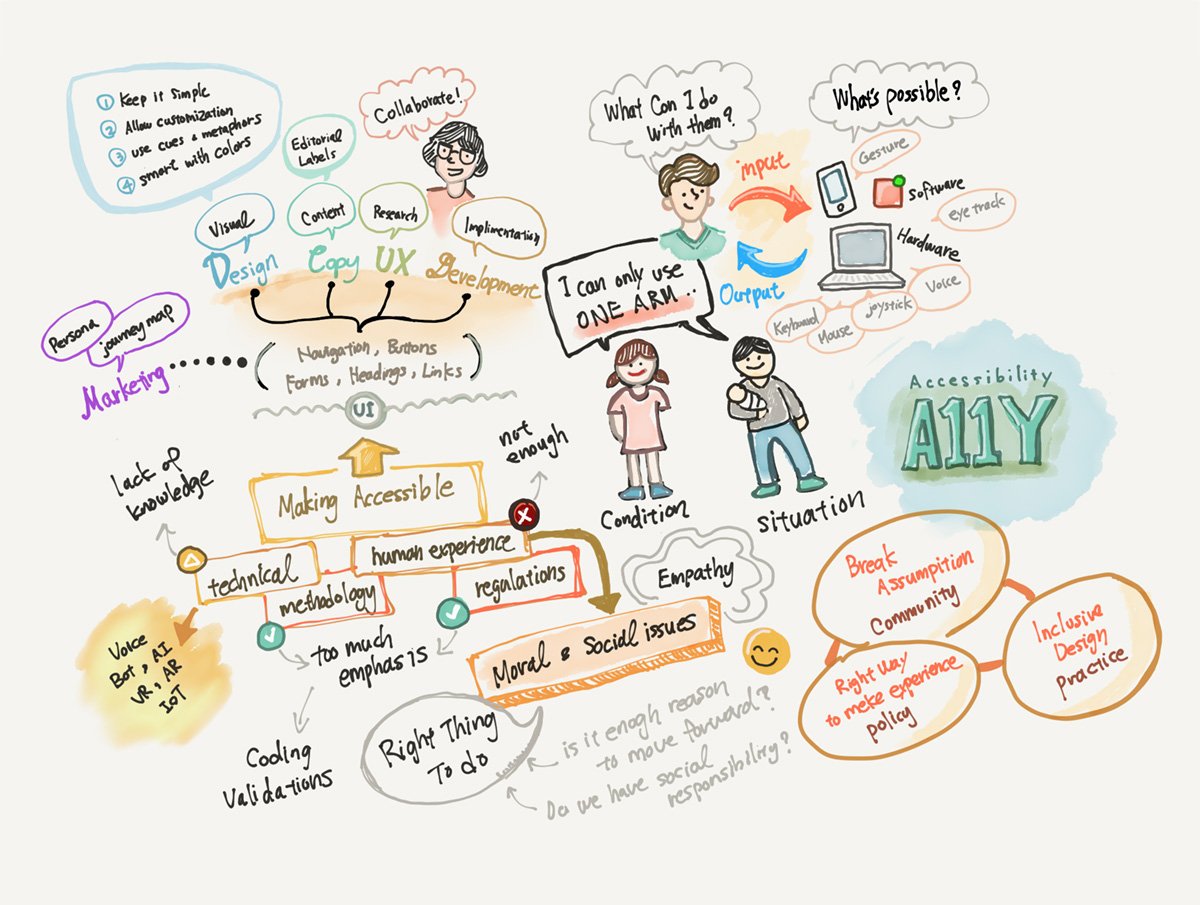 ① Keep it simple
② Allow customization
③ use cues & metaphors
④ smart with colors
Collaborate!
Editorial
Labels
Visual
Content
Research
Implimentation
Design
Copy
UX
Development
Persona
journey map
Marketing
Navigation, Buttons
Forms, Headings, Links
UI
What Can I do
with them?
What's possible?
input
Output
Gesture
Software
eye track
Hardware
Voice
joystick
Mouse
Keyboard
I can only use
ONE ARM..
Condition
Situation
Accessibility
A11Y
lack of
knowledge
not
enough
Making Accessible
technical
human experience
methodology
regulations
Voice
Bot, AI
VR, AR
IoT
too much
emphasis
Coding
Validations
Empathy
Moral & Social issues
Right Thing
To do
is it enogh reason
to move forward?
Do we have social
responsibility?
Break
Assumpition
Community
Inclusive
Design
practice
Right Way
to meke experience
policy